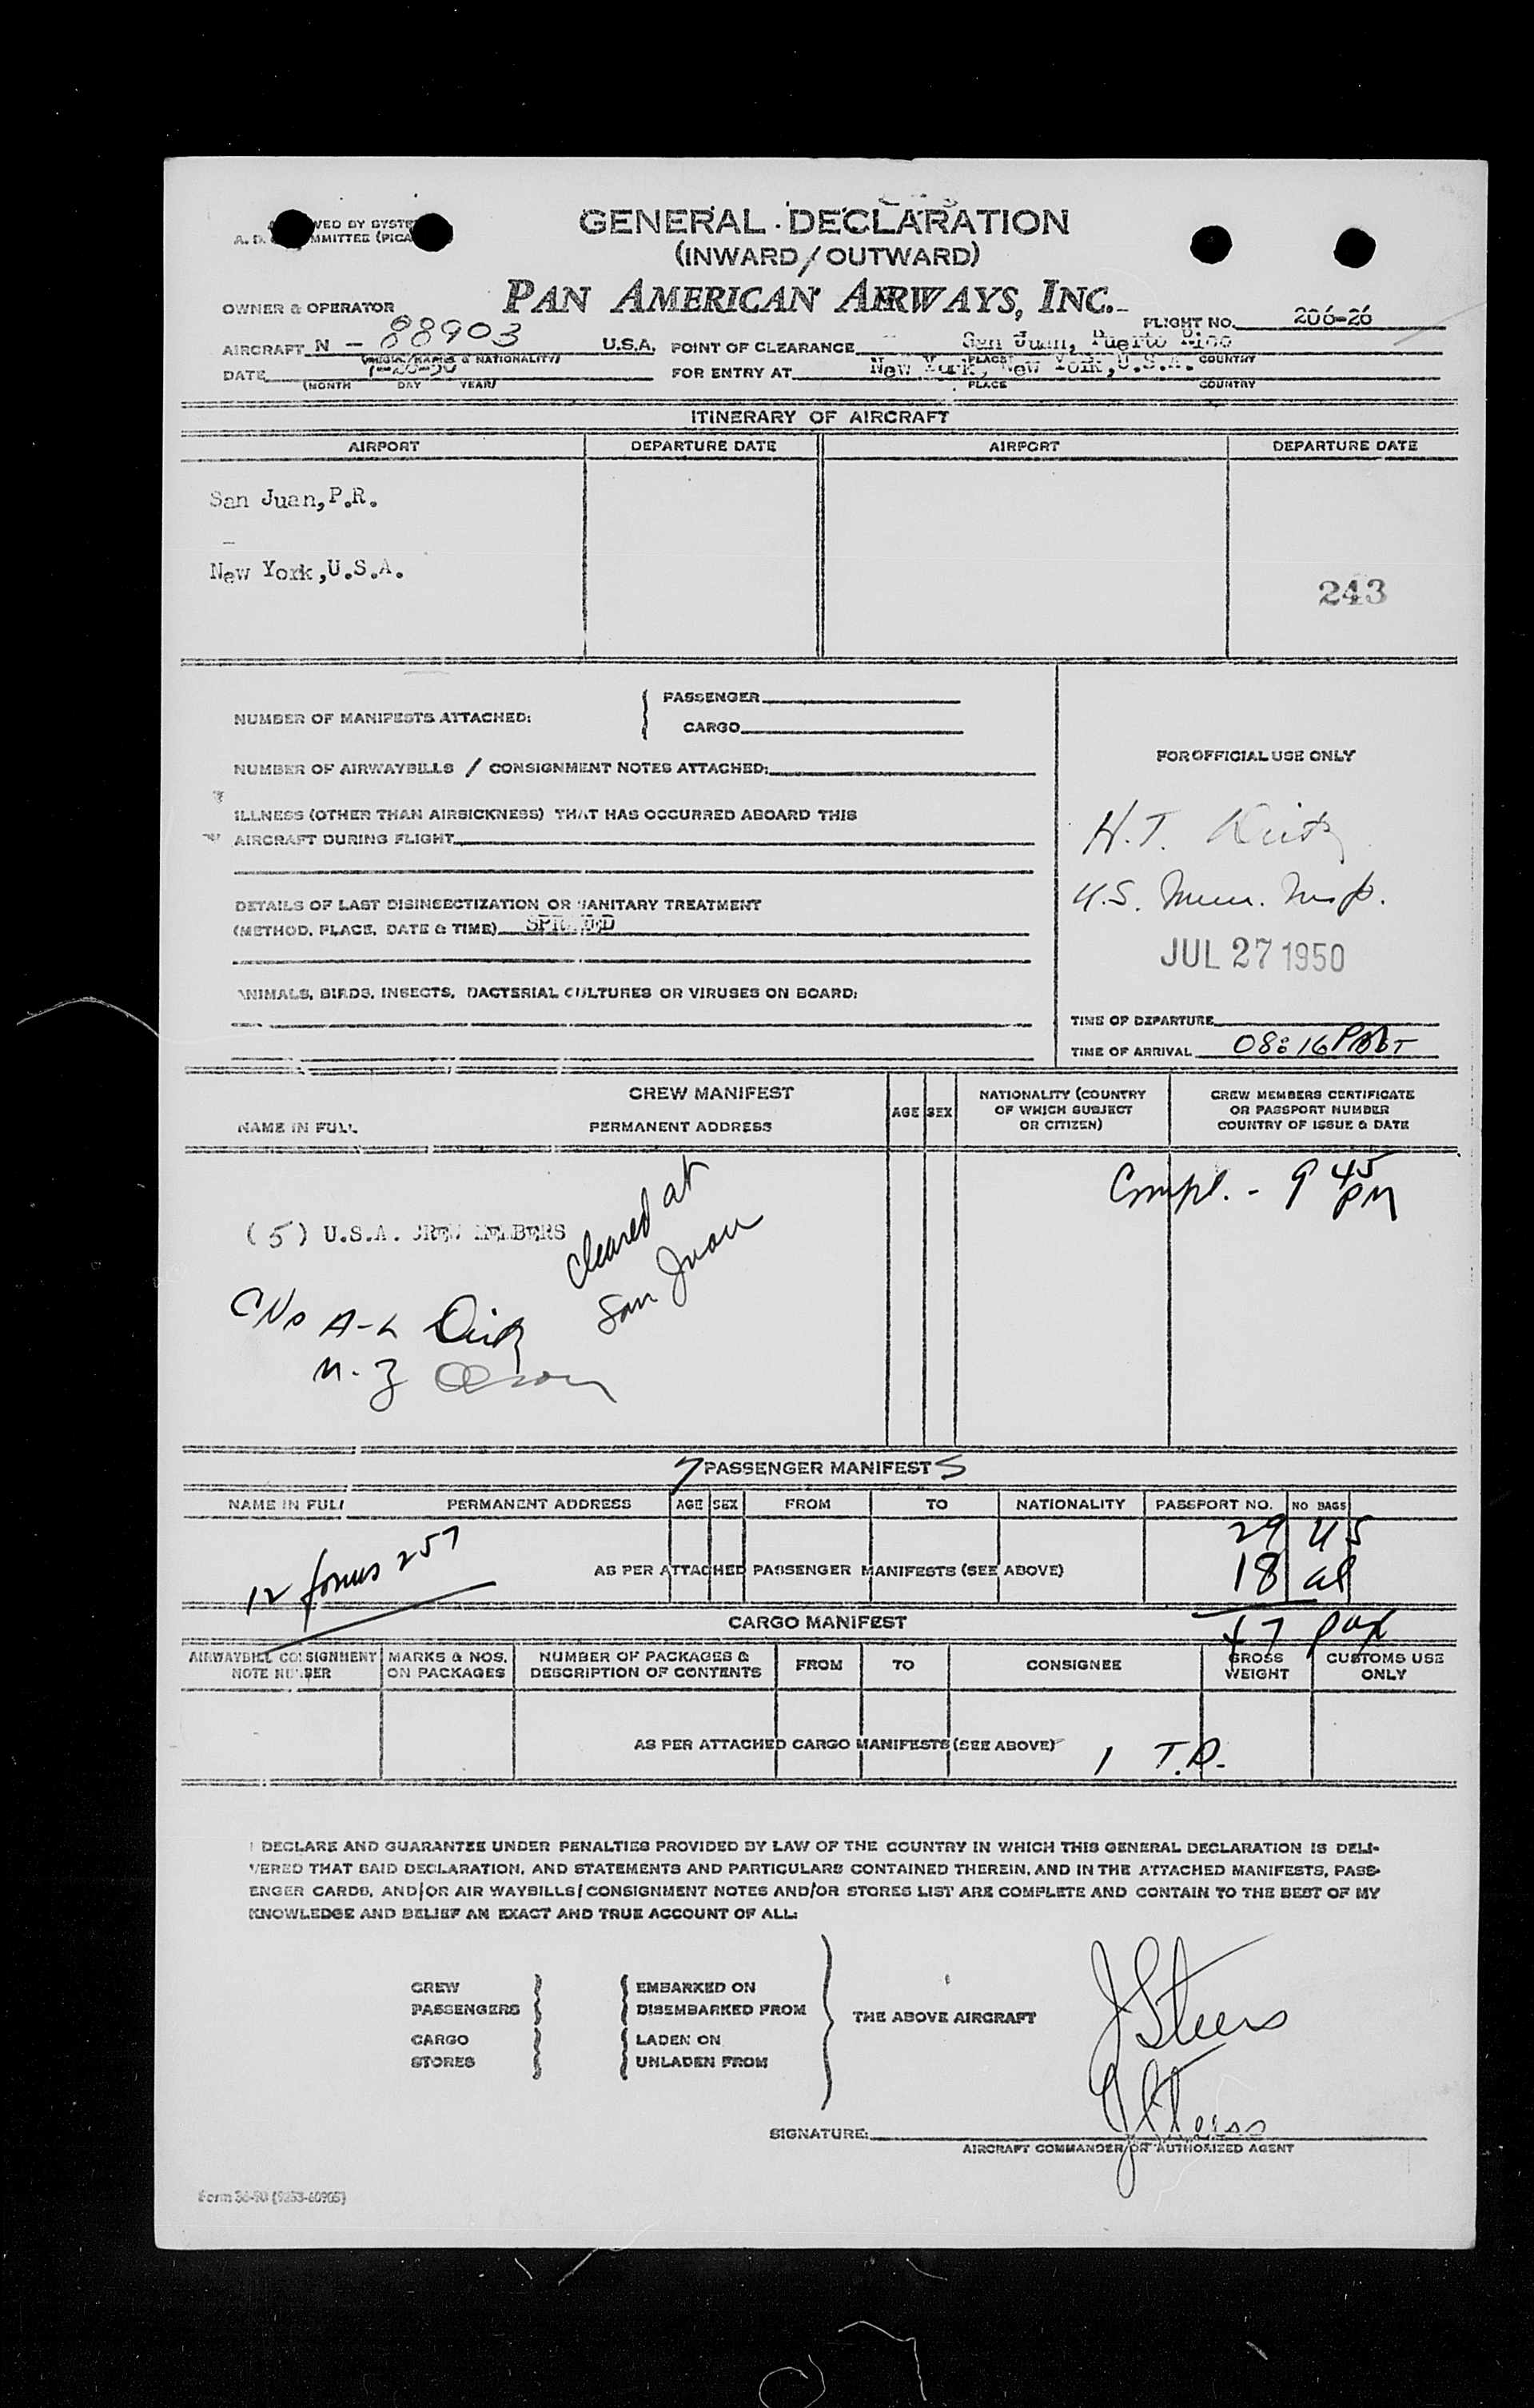 GENERAL DECLARATION
(INWARD/OUTWARD)
PAN AMERICAN AIRWAYS, INC.
OWNER & OPERATOR
FLIGHT NO. 206-26
AIRCRAFT N - 88903 U.S.A. POINT OF CLEARANCE San Juan, Puerto Rico
(MARKS & NATIONALITY) PLACE COUNTRY
DATE 7-26-50 FOR ENTRY AT New York, New York, U.S.A.
(MONTH DAY YEAR) PLACE COUNTRY
ITINERARY OF AIRCRAFT
AIRPORT DEPARTURE DATE AIRPORT DEPARTURE DATE
San Juan, P.R.
-
New York, U.S.A.
243
NUMBER OF MANIFESTS ATTACHED: { PASSENGER
CARGO
NUMBER OF AIRWAYBILLS / CONSIGNMENT NOTES ATTACHED:
FOR OFFICIAL USE ONLY
ILLNESS (OTHER THAN AIRSICKNESS) THAT HAS OCCURRED ABOARD THIS
AIRCRAFT DURING FLIGHT
H.T.
U.S. Imm. Insp.
DETAILS OF LAST DISINSECTIZATION OR SANITARY TREATMENT
(METHOD, PLACE, DATE & TIME) SPRAYED
JUL 27 1950
ANIMALS, BIRDS, INSECTS, BACTERIAL CULTURES OR VIRUSES ON BOARD:
TIME OF DEPARTURE
TIME OF ARRIVAL 08:16 PM
CREW MANIFEST
NAME IN FULL PERMANENT ADDRESS AGE SEX NATIONALITY (COUNTRY OF WHICH SUBJECT OR CITIZEN) CREW MEMBERS CERTIFICATE OR PASSPORT NUMBER COUNTRY OF ISSUE & DATE
Compl. - 9 45 PM
(5) U.S.A. CREW MEMBERS
cleared at
San Juan
A-L
M-Z
PASSENGER MANIFEST
NAME IN FULL PERMANENT ADDRESS AGE SEX FROM TO NATIONALITY PASSPORT NO. NO BAGS
29 US
12 forms 257
AS PER ATTACHED PASSENGER MANIFESTS (SEE ABOVE)
18 al
47 pax
CARGO MANIFEST
AIRWAYBILL CONSIGNMENT NOTE NUMBER MARKS & NOS. ON PACKAGES NUMBER OF PACKAGES & DESCRIPTION OF CONTENTS FROM TO CONSIGNEE GROSS WEIGHT CUSTOMS USE ONLY
AS PER ATTACHED CARGO MANIFESTS (SEE ABOVE)
1 T.D.
I DECLARE AND GUARANTEE UNDER PENALTIES PROVIDED BY LAW OF THE COUNTRY IN WHICH THIS GENERAL DECLARATION IS DELI-
VERED THAT SAID DECLARATION, AND STATEMENTS AND PARTICULARS CONTAINED THEREIN, AND IN THE ATTACHED MANIFESTS, PASS-
ENGER CARDS, AND/OR AIR WAYBILLS/CONSIGNMENT NOTES AND/OR STORES LIST ARE COMPLETE AND CONTAIN TO THE BEST OF MY
KNOWLEDGE AND BELIEF AN EXACT AND TRUE ACCOUNT OF ALL:
CREW EMBARKED ON
PASSENGERS DISEMBARKED FROM
THE ABOVE AIRCRAFT
CARGO LADEN ON
STORES UNLADEN FROM
J Steers
SIGNATURE:
AIRCRAFT COMMANDER OR AUTHORIZED AGENT